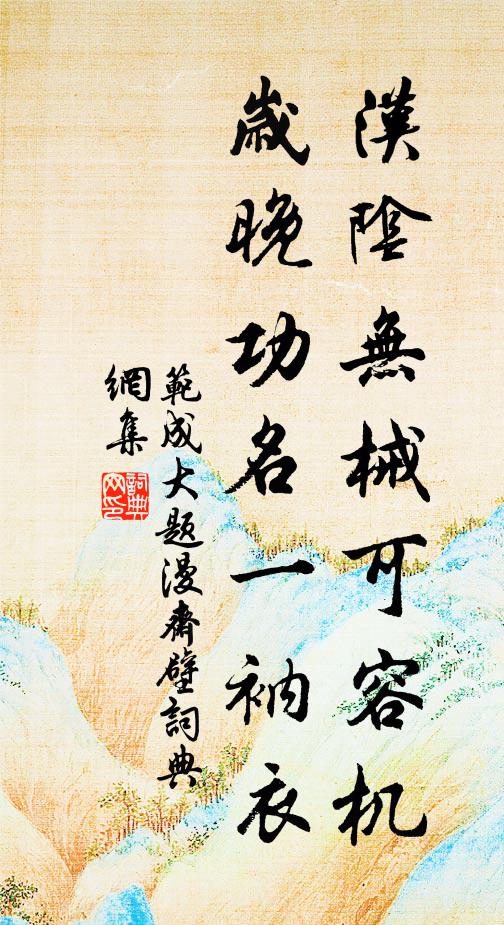 漢陰無械可容机
歲晚功名一衲衣
範成大題漫齋壁詞典
網集
詞典
网印